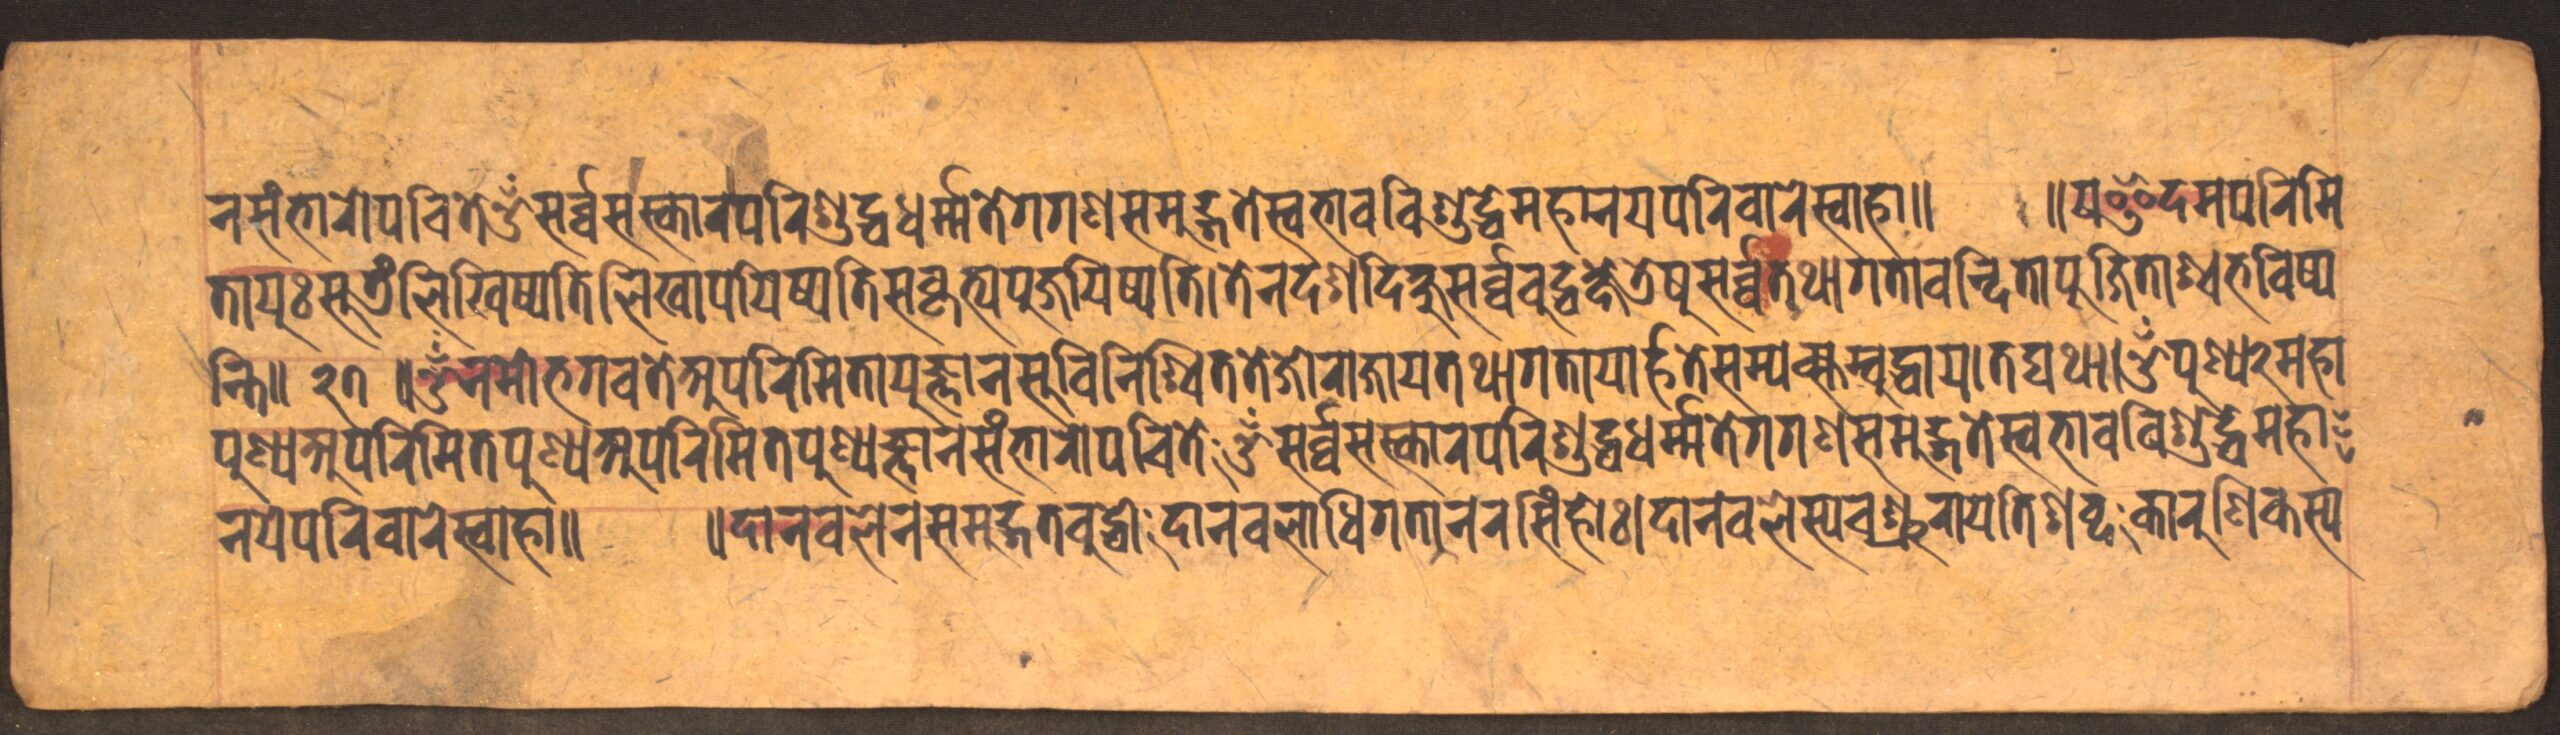 नसंभारोपचितेॐसर्व्वसस्कारपरिशुद्धधर्म्मतेगगणसमुद्गतेस्वभावविशुद्धेमहानयपरिवारेस्वाहा॥ ॥यइदमपरिमि
तायुःसुत्रंलिखिष्यतिलिखापयिष्यतिसत्कृत्यपुजयिष्यति।तेनदशदिक्षुसर्व्वबुद्धक्षेत्रेषुसर्व्वतथागतावन्दितापूजिताश्चभविष्य
न्ति॥ २७ ॥ॐनमोभगवतेअपरिमितायुज्ञानसुविनिश्चिततेजोराजायतथागतायार्हतेसम्यक्सम्बुद्धाय।तद्यथा।ॐपुण्य२महा
पुण्यअपरिमितपुण्यअपरिमितपुण्यज्ञानसंभारोपचितेॐसर्व्वसस्कारपरिशुद्धधर्म्मतेगगणसमुद्गतेस्वभावविशुद्धेमहा
नयेपरिवारेस्वाहा॥ ॥दानवलेनसमुद्गतवुद्धोदानवलाधिगतानरसिंहोः।दानवलेस्यचश्रुरायतिशब्दकारुणिकस्य